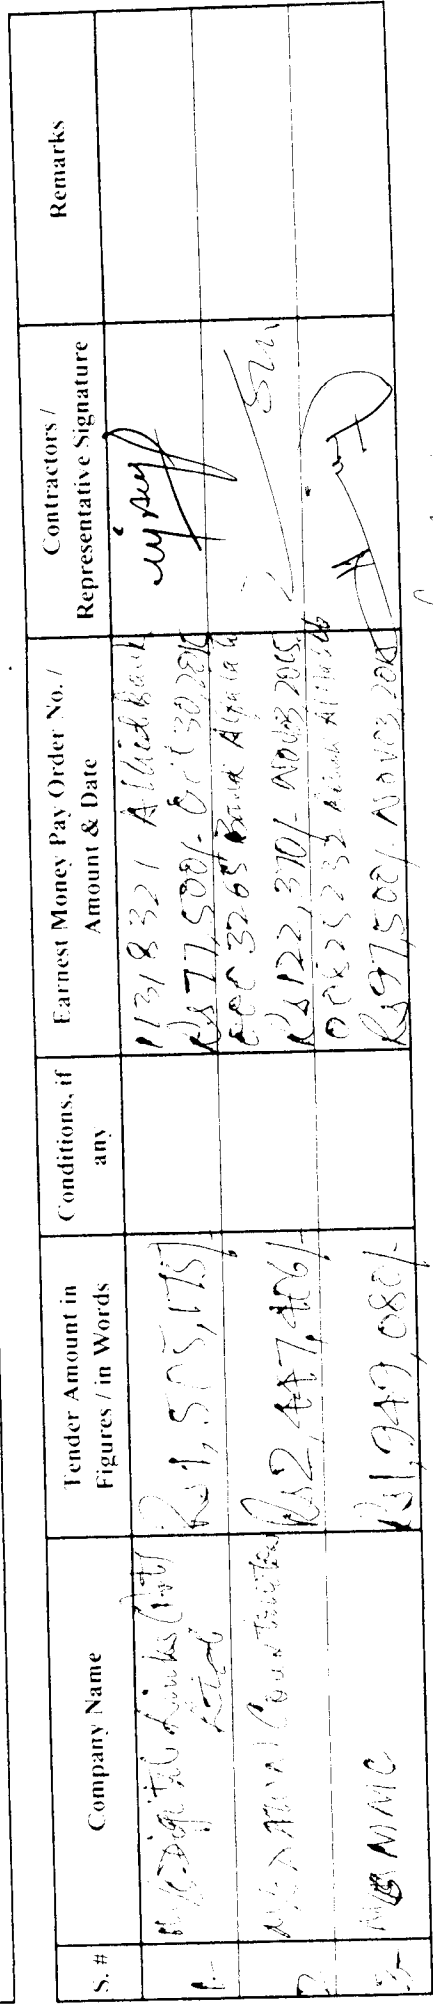 S. #
Company Name
Tender Amount in
Figures / in Words
Conditions, if
any
Earnest Money Pay Order No. /
Amount & Date
Contractors /
Representative Signature
Remarks
1-
M/S Digital Links (Pvt)
Rs1,505,175/
11318321 Allied Bank
Rs77,500/- Oct 30, 2015
2
M/S Construction
Rs2,447,406/-
Bank Alfalah
Rs122,370/- Nov 03 2015
3-
M/S MMC
Rs1,949,080/-
Bank Alfalah
Rs97,500/- Nov 03 2015